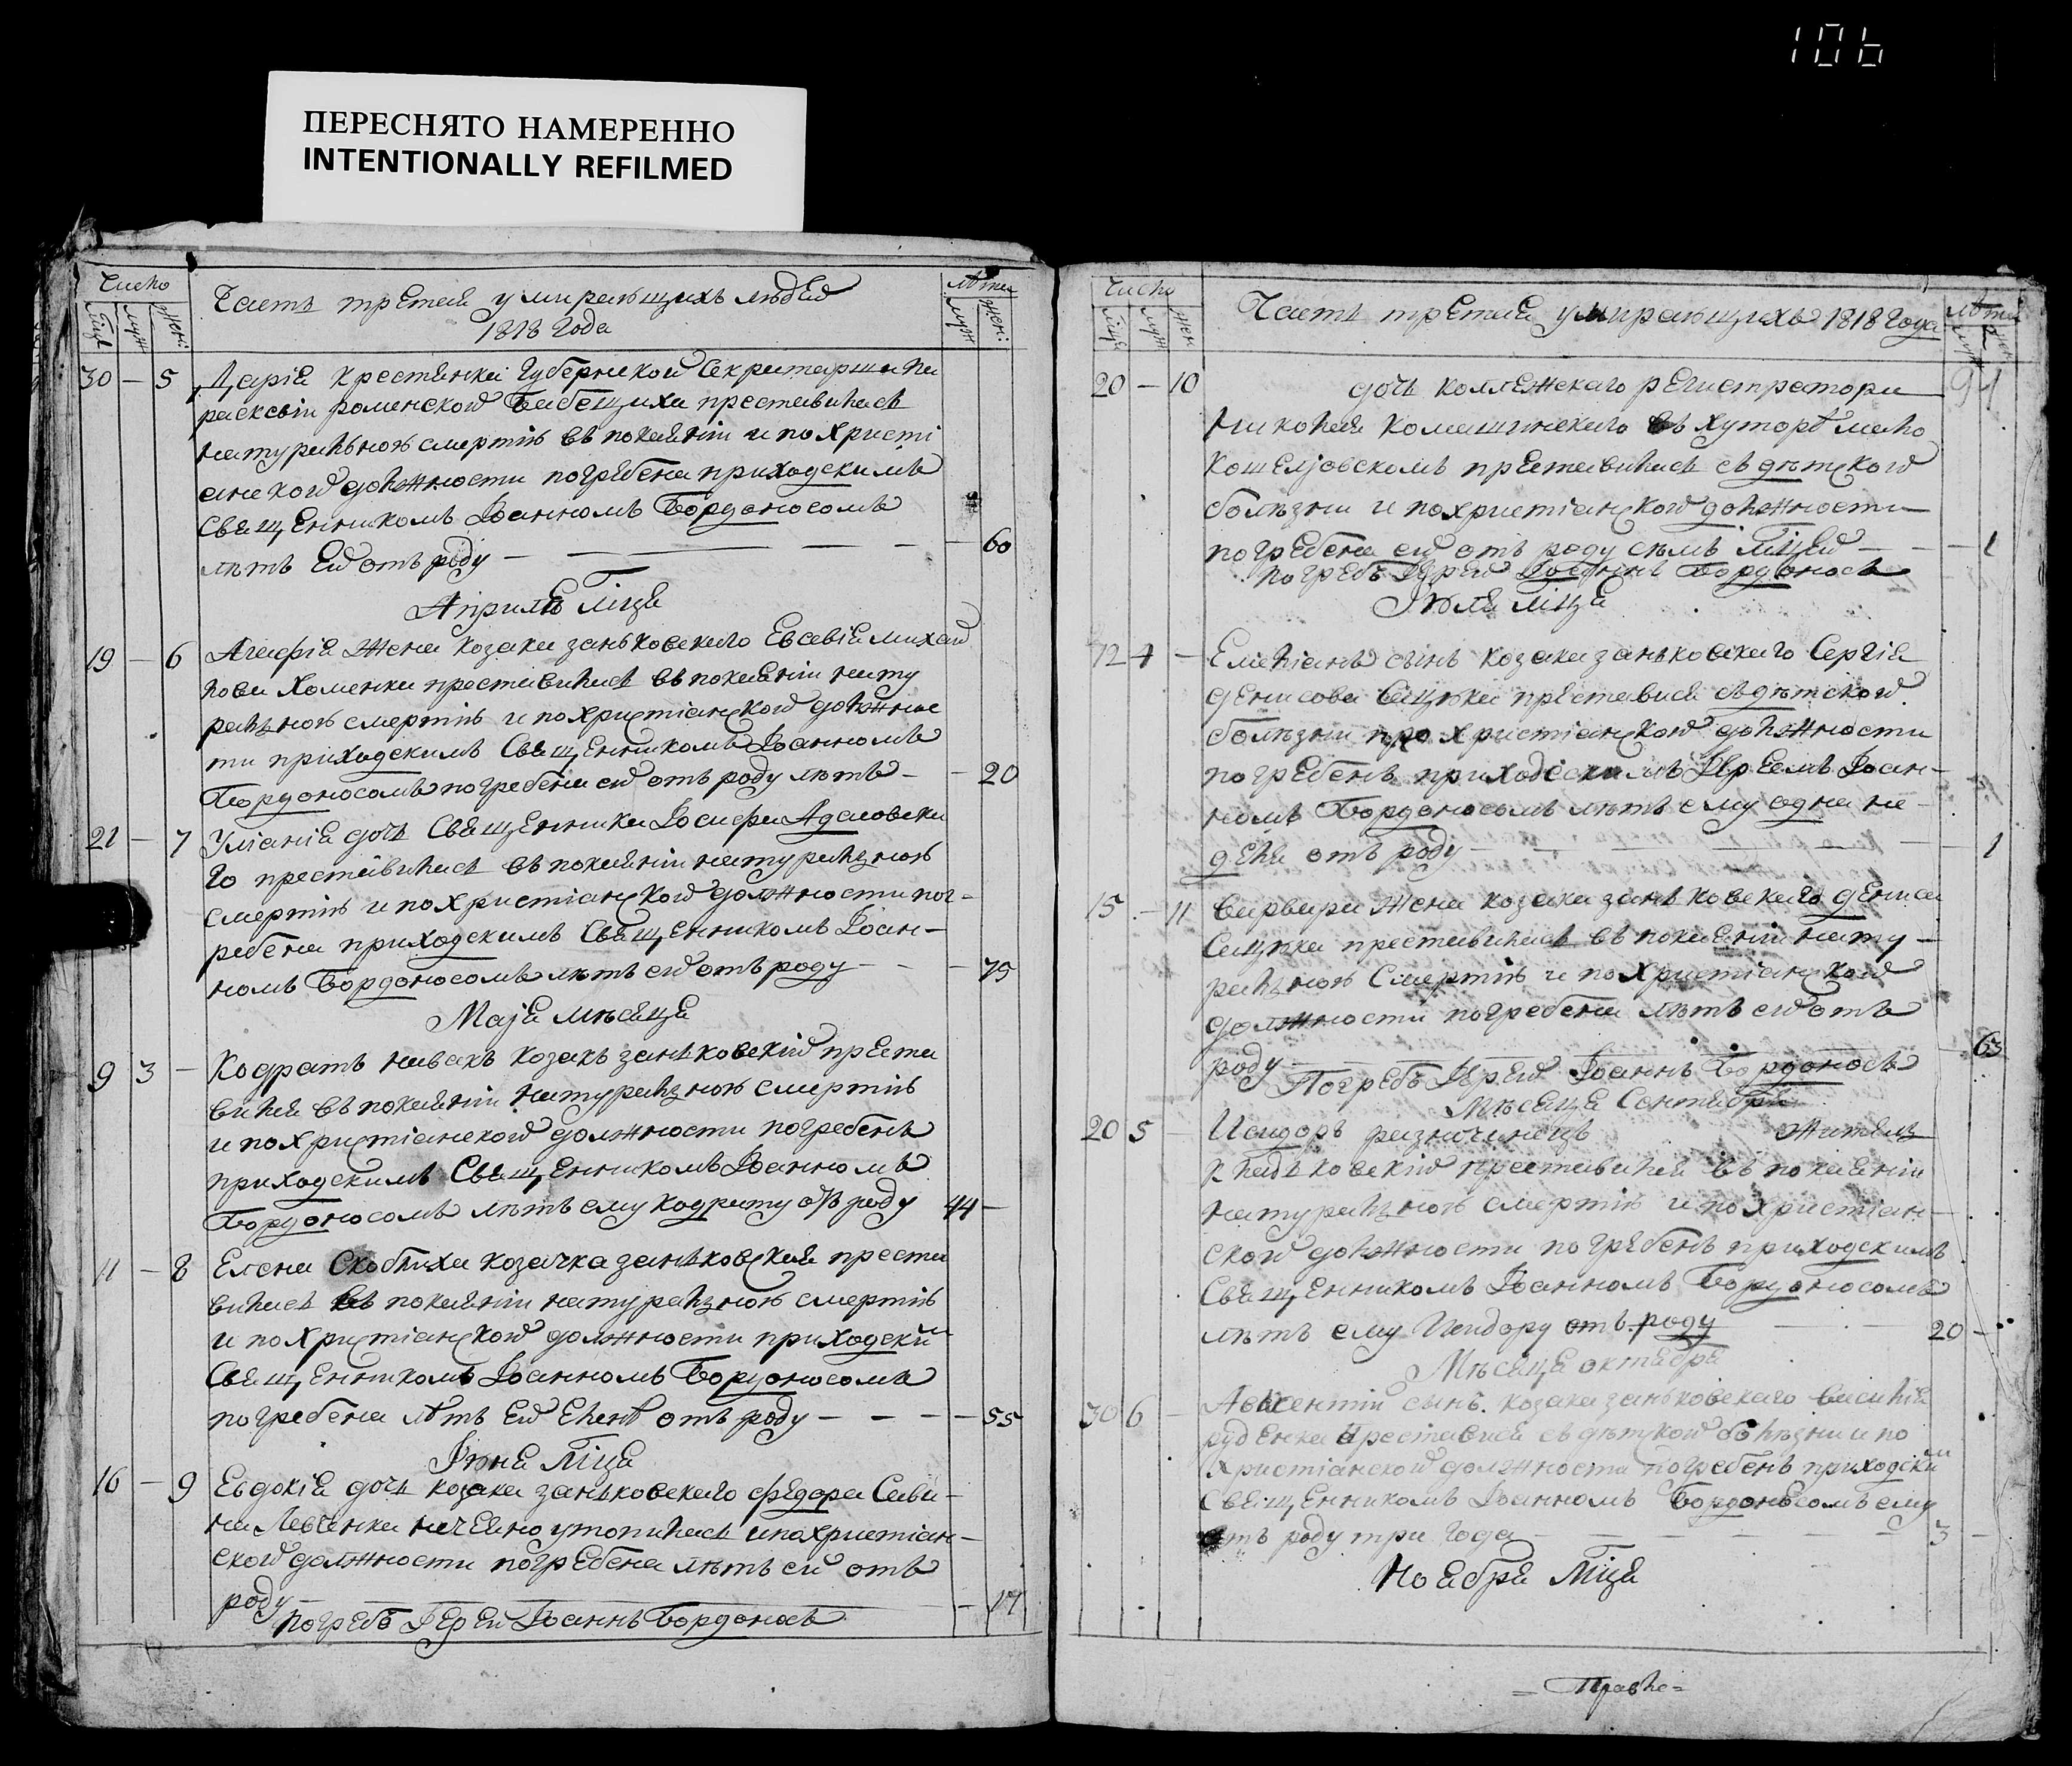 106
ПЕРЕСНЯТО НАМЕРЕННО
INTENTIONALLY REFILMED
Число
Лѣта
Часть третая умирающихъ людей
1818 Года
муж
жен:
муж
жен:
30 — 5 Дарія крестянка Губернской Секретарши Па
раскевіи роменской преставилась
натуральною смертію въ покаяніи и по Христі
анской должности погребена приходскимъ
Священникомъ Іоанномъ Бордоносомъ
лѣтъ ей отъ роду — 60
Априля Мца
19 — 6 Агафія Жена козака заньковскаго Евсевія михай
лова Хоменка преставилась въ покаяніи нату
ральною смертію и по христіанской должнос
ти приходскимъ Священникомъ Іоанномъ
Бордоносомъ погребена ей отъ роду лѣтъ — — 20
21 — 7 Уліанія дочь Священника Іосифа
го преставилась въ покаяніи натуральною
смертію и по христіанской должности пог-
ребена приходскимъ Священникомъ Іоан-
номъ Бордоносомъ лѣтъ ей отъ роду — — 75
Маја мѣсяца
9 3 — Кодратъ козакъ заньковскій преста
вился въ покаяніи натуральною смертію
и по христіанской должности погребенъ
приходскимъ Священникомъ Іоанномъ
Бордоносомъ лѣтъ ему кодрату отъ роду 44 —
11 — 8 Елена козачка заньковская преста
вилась въ покаяніи натуральною смертію
и по христіанской должности приходским
Священникомъ Іоанномъ Бордоносомъ
погребена лѣтъ ей Еленѣ отъ роду — — — — 55
Іюня Мца
16 — 9 Евдокія дочь козака заньковскаго федора Сави-
на Левченка нечаяно утопилась и по христіан-
ской должности погребена лѣтъ ей отъ
роду — — 17
погребъ Іерей Іоаннъ Бордоносъ
Число
Лѣта
Часть третая умирающихъ 1818 Года
муж
жен
муж
жен
20 — 10 дочь коллежскаго регистратора
Николая Комашинскаго въ хуторѣ мало
кошелювскомъ преставилась съ дѣтской
болѣзни и по христіанской должности
погребена ей отъ роду семь мцей — — — 1
погребъ Іерей Іоаннъ Бордоносъ
Іюля мца
12 4 — Емеліанъ сынъ козака заньковскаго Сергія
денисова преставися съ дѣтской
болѣзни по христіанской должности
погребенъ приходскимъ Іереемъ Іоан-
номъ Бордоносомъ лѣтъ ему одна не-
деля отъ роду — 1
15 — 11 Варвара Жена козака заньковскаго дениса
преставилась въ покаяніи нату-
ральною Смертію и по Христіанской
должности погребена лѣтъ ей отъ
роду — 63
Погребъ Іерей Іоаннъ Бордоносъ
Мѣсяца Сентября
20 5 — Исидоръ разночинецъ житель
преставился въ покаяніи
натуральною смертію и по христіан-
ской должности погребенъ приходскимъ
Священникомъ Іоанномъ Бордоносомъ
лѣтъ ему Исидору отъ роду — 20 —
Мѣсяца октября
30 6 — Авксентій сынъ козака заньковскаго василія
руденка Преставися съ дѣтской болѣзни и по
Христіанской должности погребенъ приходским
Священникомъ Іоанномъ Бордоносомъ ему
отъ роду три года — 3 —
Ноября Мца